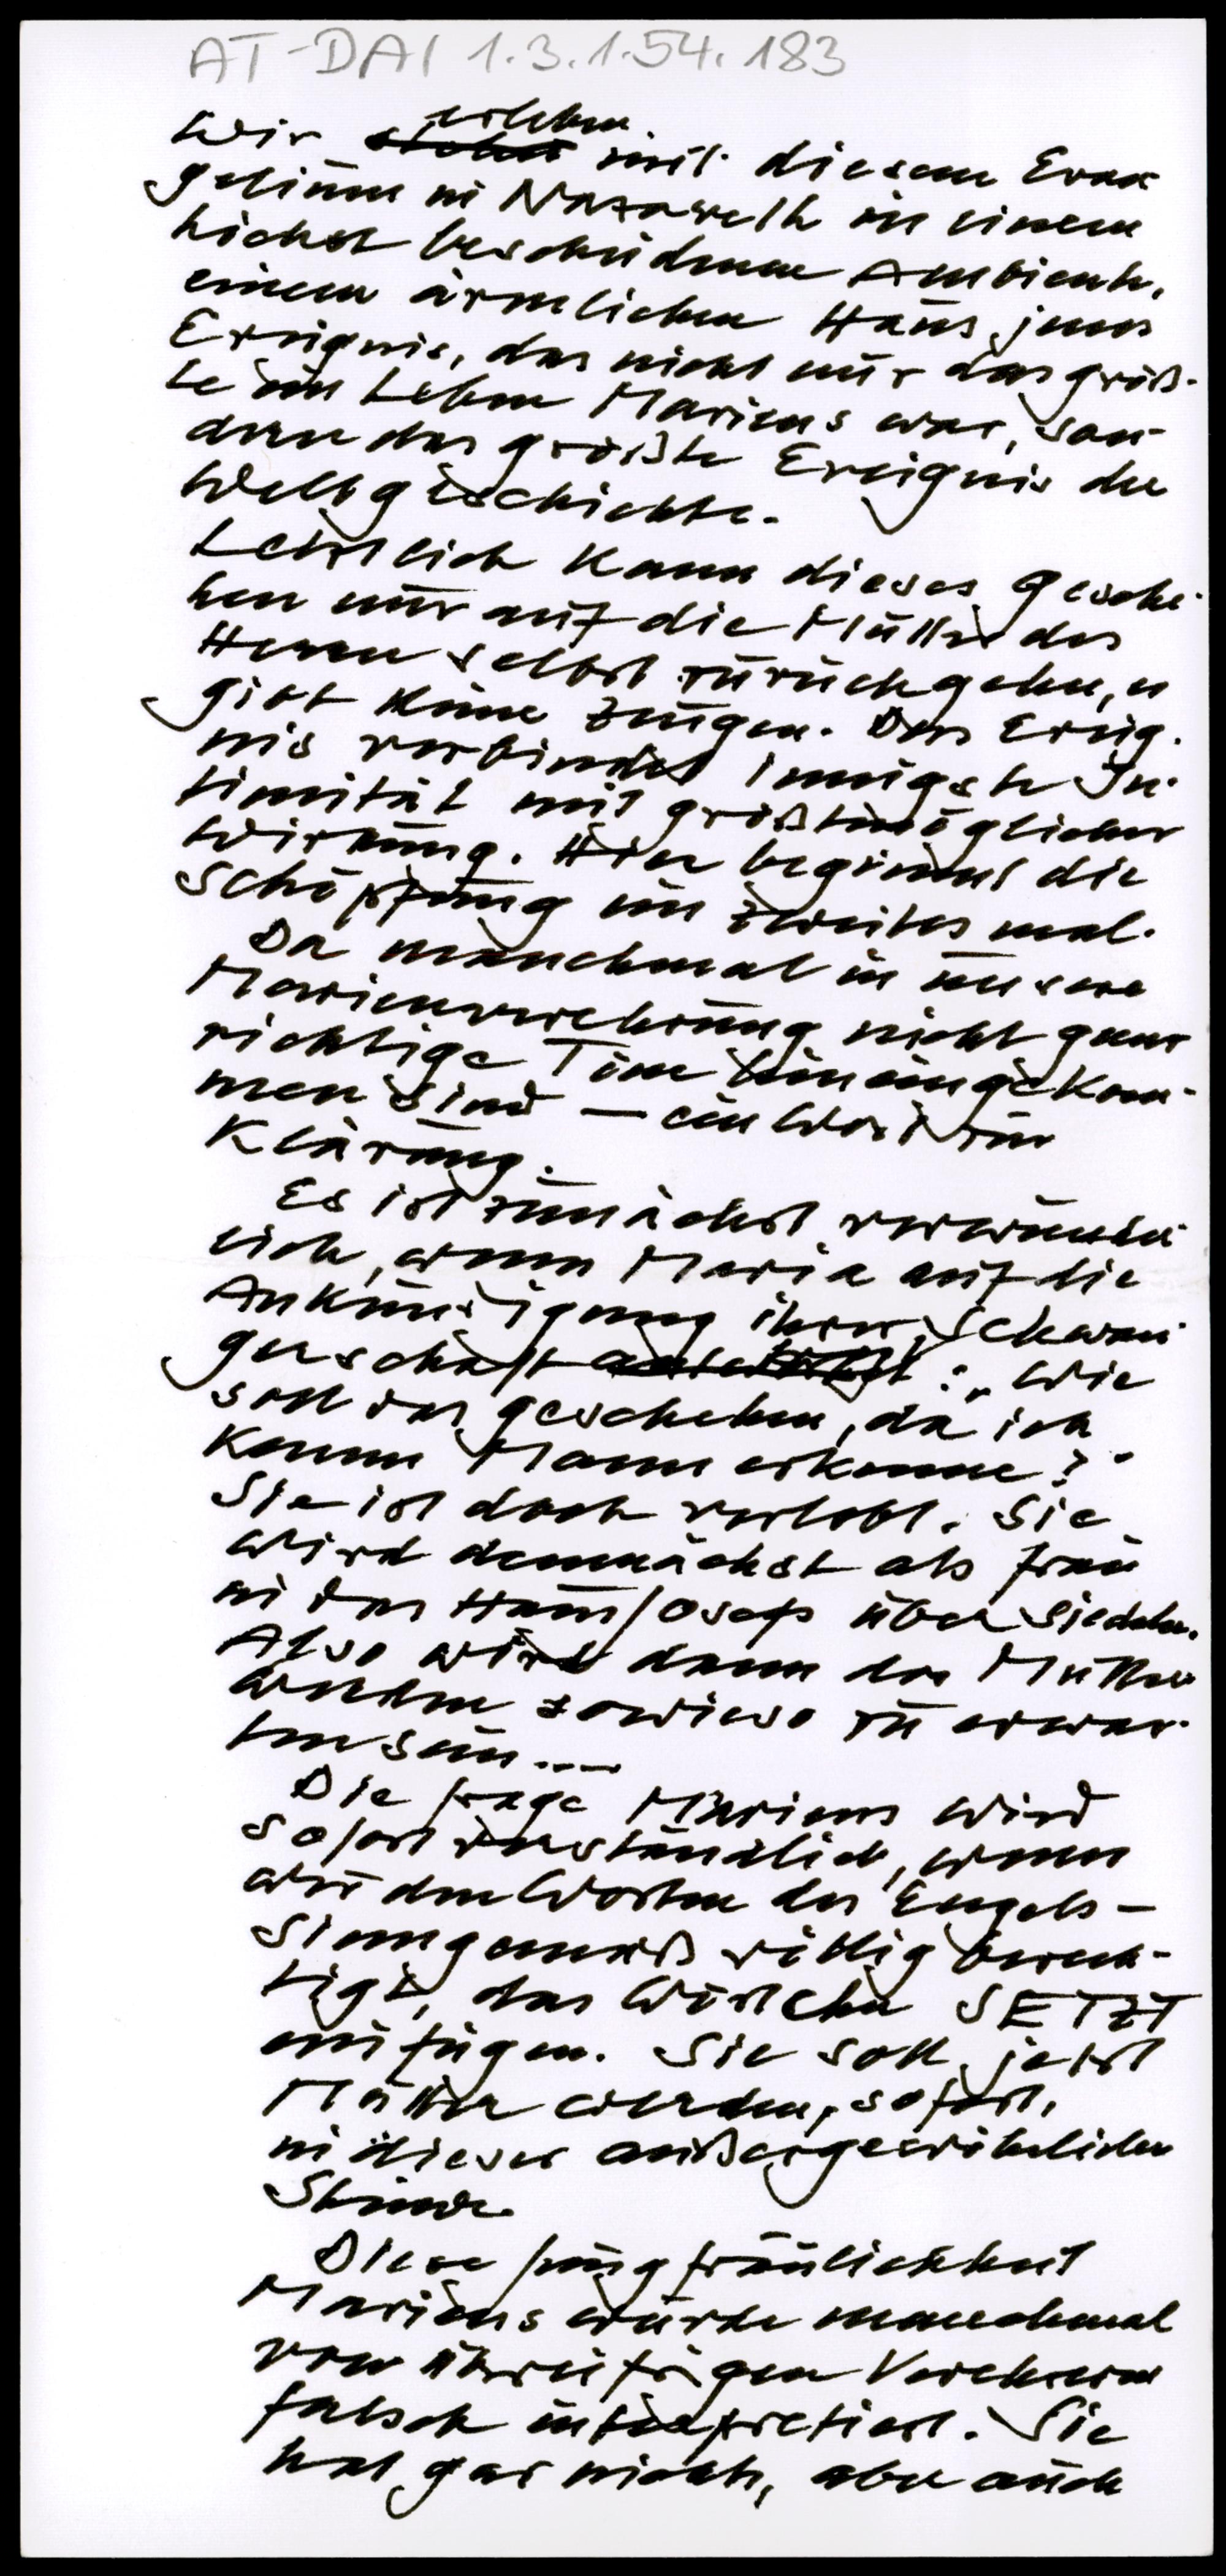 AT-DAI 1.3.1.54.183
erleben
Wir stehen mit diesem Evan
gelium in Nazareth in einem
höchst bescheidenen Ambiente,
einem ärmlichen Haus, jenes
Ereignis, das nicht nur das größ-
te im Leben Mariens war, son-
dern das größte Ereignis der
Weltgeschichte.
Letztlich kann dieses Gesche-
hen nur auf die Mutter des
Herrn selbst zurückgehen, es
gibt keine Zeugen. Das Ereig-
nis verbindet innigste In-
timität mit größtmöglicher
Wirkung. Hier beginnt die
Schöpfung ein zweites mal.
Da manchmal in unsere
Marienverehrung nicht ganz
richtige Töne hineingekom-
men sind – ein Wort zur
Klärung.
Es ist zunächst verwunder-
lich, wenn Maria auf die
Ankündigung ihrer Schwan-
gerschaft antwortet: „Wie
soll das geschehen, da ich
keinen Mann erkenne?"
Sie ist doch verlobt. Sie
wird demnächst als Frau
in das Haus Josefs übersiedeln.
Also wird dann das Mutter
werden sowieso zu erwar-
ten sein....
Die Frage Mariens wird
sofort verständlich, wenn
wir den Worten des Engels –
sinngemäß völlig berech-
tigt, das Wörtchen JETZT
einfügen. Sie soll jetzt
Mutter werden, sofort,
in dieser außergewöhnlichen
Stunde.
Diese Jungfräulichkeit
Mariens wurde manchmal
von übereifrigen Verehrern
falsch interpretiert. Sie
hat gar nichts, aber auch